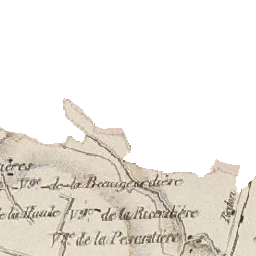 ères
V.ge de la Beaugeardière
de la Haule V.ge de la Ricerdière
V.ge de la Pesantière